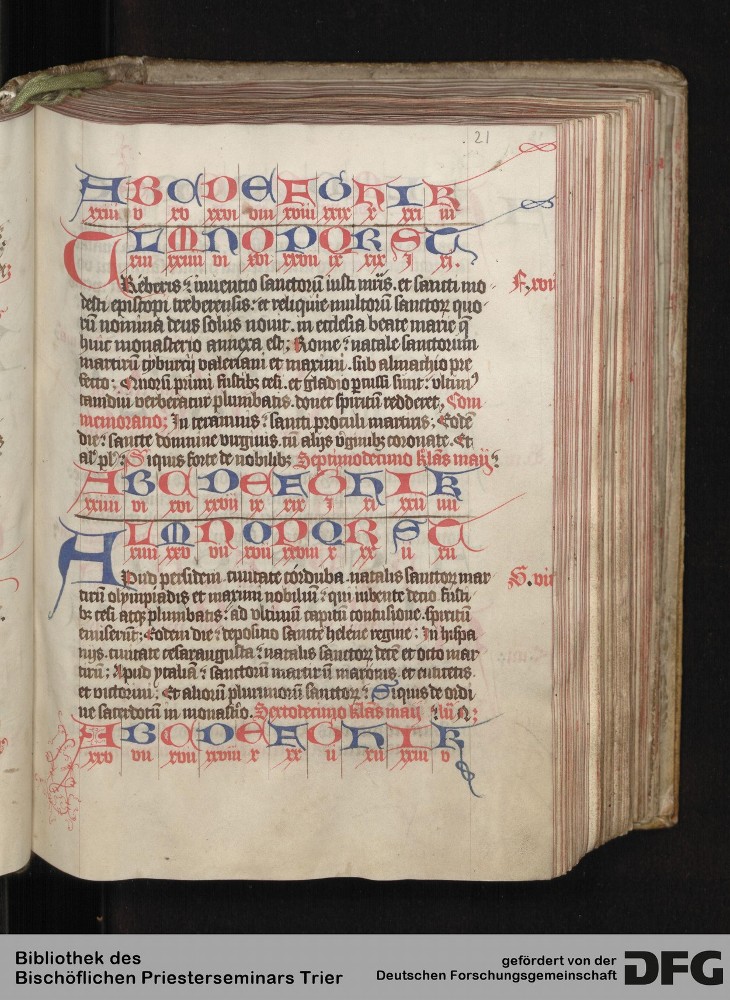 21
A B C D E F G H I K
xxiii v xv xxvi viii xviii xxix x xxi iii
L M N O P Q R S T
xiii xxiiii vi xvi xxvii ix xix I xi.
Treberis ⁊ inuentio sanctorū iusti mris. et sancti mo
desti episcopi treberensis. et reliquie multorū sanctoꝝ quo
rū nomina deus solus nouit. in ecclesia beate marie q̄
huic monasterio annexa est; Rome. natale sanctorum
martirū tyburcij valeriani et maximi. sub almachio pre
fecto; Quorū primi fustibꝫ cesi. et gladio pcussi sunt. ultimꝰ
tamdiu verberatur plumbatis. donec spiritū redderet, Com
memoratio; In teramnis. sancti proculi martiris; Eodē
die. sancte domnine virginis. cū alijs virginibꝫ coronate. Et
al. pl. Siquis forte de nobilibꝫ Septimodecimo klās maij.
F. xvii
A B C D E F G H I K
xxiiii vi xvi xxvii ix xix I xi xxii iiii
L M N O P Q R S T
xiiii xxv vii xvii xxviii x xx ii xii
Apud persidem. ciuitate corduba. natalis sanctoꝝ mar
tirū olympiadis et maximi nobiliū. qui iubente decio fusti
bꝫ cesi atqꝫ plumbatis. ad vltimū capitū contusione. spiritū
emiserūt; Eodem die. depositio sancte helene regine; In hispa
nijs. ciuitate cesaraugusta. natalis sanctoꝝ decē et octo mar
tirū; Apud ytaliā. sanctorū martirū maronis. et euticetis.
et victorini; Et aliorū plurimorū sanctoꝝ. Siquis de ordi
ne sacerdotū in monastio. Sextodecimo klās maij
G. vii
A B C D E F G H I K
xxv vii xvii xxviii x xx ii xii xxiii v
Bibliothek des
Bischöflichen Priesterseminars Trier
gefördert von der
Deutschen Forschungsgemeinschaft
DFG